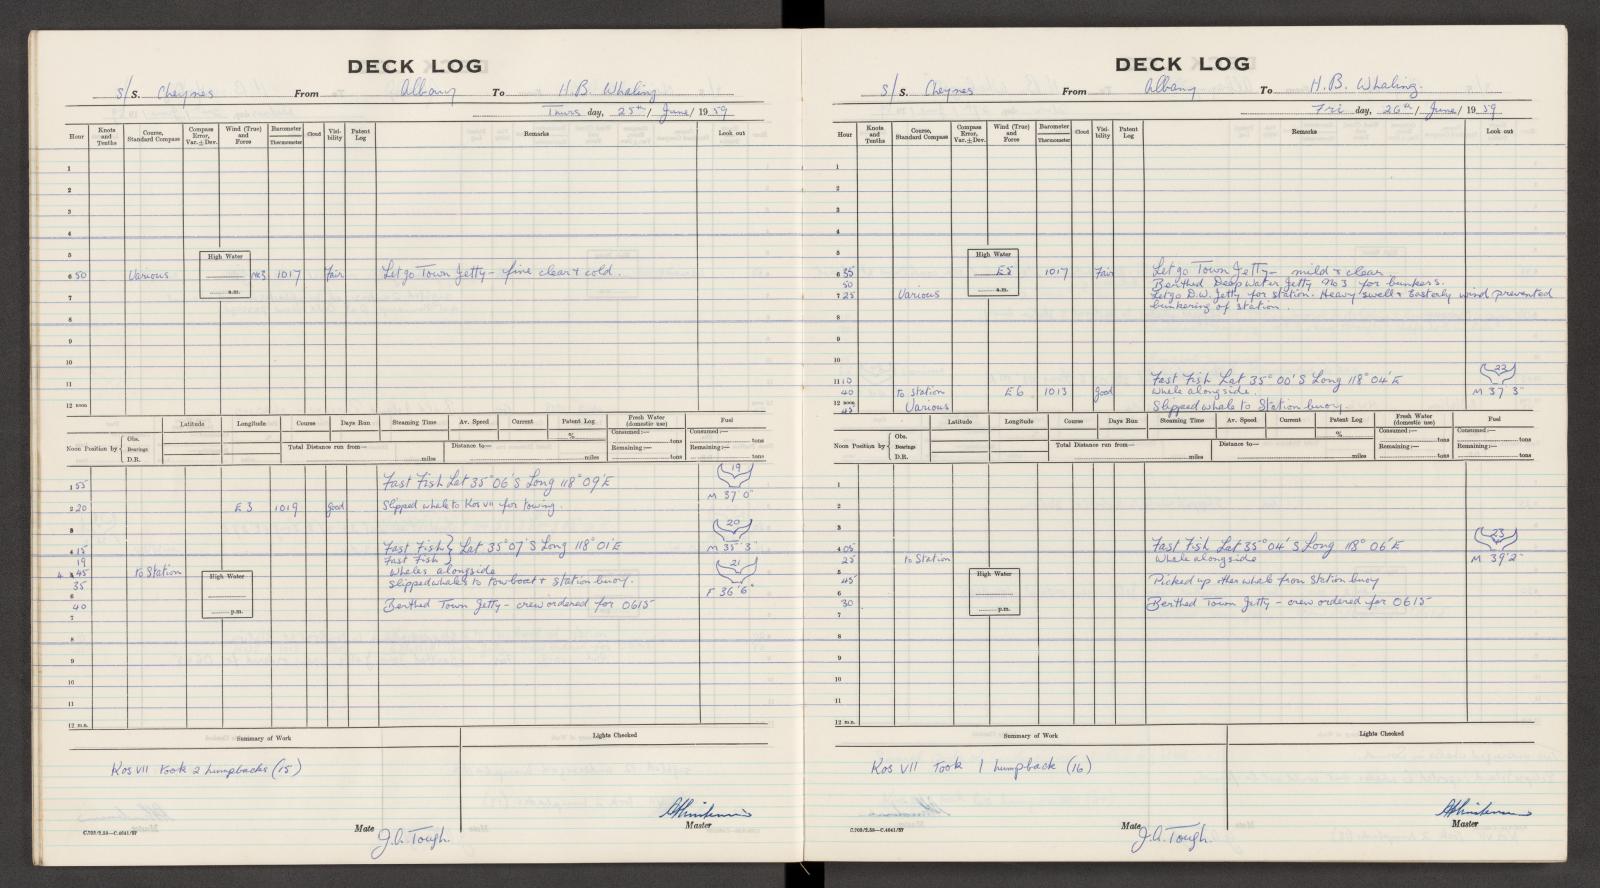 DECK LOG
S/S. Cheynes From Albany To H.B. Whaling
Thurs day, 25th / June / 1959
Hour Knots and Tenths Course, Standard Compass Compass Error, Var. ± Dev. Wind (True) and Force Barometer Thermometer Cloud Visibility Patent Log Remarks Look out
1
2
3
4
5
High Water
6 50 Various NE3 1017 Fair Let go Town Jetty - fine clear & cold.
a.m.
7
8
9
10
11
12 noon
Noon Position by Obs. Bearings D.R. Latitude Longitude Course Days Run Steaming Time Av. Speed Current Patent Log Fresh Water (domestic use) Fuel
% Consumed:— tons Consumed:— tons
Total Distance run from— miles Distance to— miles Remaining:— tons Remaining:— tons
19
1 55 Fast Fish Lat 35° 06' S Long 118° 09' E
M 37' 0"
2 20 E 3 1019 good Slipped whale to Kos VII for towing.
3
20
4 15 Fast Fish } Lat 35° 07' S Long 118° 01' E M 35' 3"
19 Fast Fish }
21
4 45 to Station Whales alongside
5
35 Slipped whales to towboat & station buoy.
High Water
F 36' 6"
6
40 Berthed Town Jetty - crew ordered for 0615
p.m.
7
8
9
10
11
12 m.n.
Summary of Work Lights Checked
Kos VII took 2 humpbacks (15)
C.702/2.59—C.4041/57
Mate J.A. Tough.
Master
DECK LOG
S/S. Cheynes From Albany To H.B. Whaling.
Fri day, 26th / June / 1959
Hour Knots and Tenths Course, Standard Compass Compass Error, Var. ± Dev. Wind (True) and Force Barometer Thermometer Cloud Visibility Patent Log Remarks Look out
1
2
3
4
5
High Water
6 35 E5 1017 Fair Let go Town Jetty - mild & clear
50 Berthed Deep Water Jetty No 3 for bunkers.
a.m.
7 25 Various Let go D.W. Jetty for station. Heavy swell & Easterly wind prevented
bunkering of station.
8
9
10
22
11 10 Fast Fish Lat 35° 00' S Long 118° 04' E
40 to Station E 6 1013 good Whale alongside. M 37' 3"
12 noon
45 Various Slipped whale to Station buoy.
Noon Position by Obs. Bearings D.R. Latitude Longitude Course Days Run Steaming Time Av. Speed Current Patent Log Fresh Water (domestic use) Fuel
% Consumed:— tons Consumed:— tons
Total Distance run from— miles Distance to— miles Remaining:— tons Remaining:— tons
1
2
3
23
4 05 Fast Fish Lat 35° 04' S Long 118° 06' E
25 to Station Whale alongside M 39' 2"
5
High Water
45 Picked up other whale from Station buoy
6
30 Berthed Town Jetty - crew ordered for 0615
p.m.
7
8
9
10
11
12 m.n.
Summary of Work Lights Checked
Kos VII Took 1 humpback (16)
C.702/2.59—C.4041/57
Mate J.A. Tough.
Master